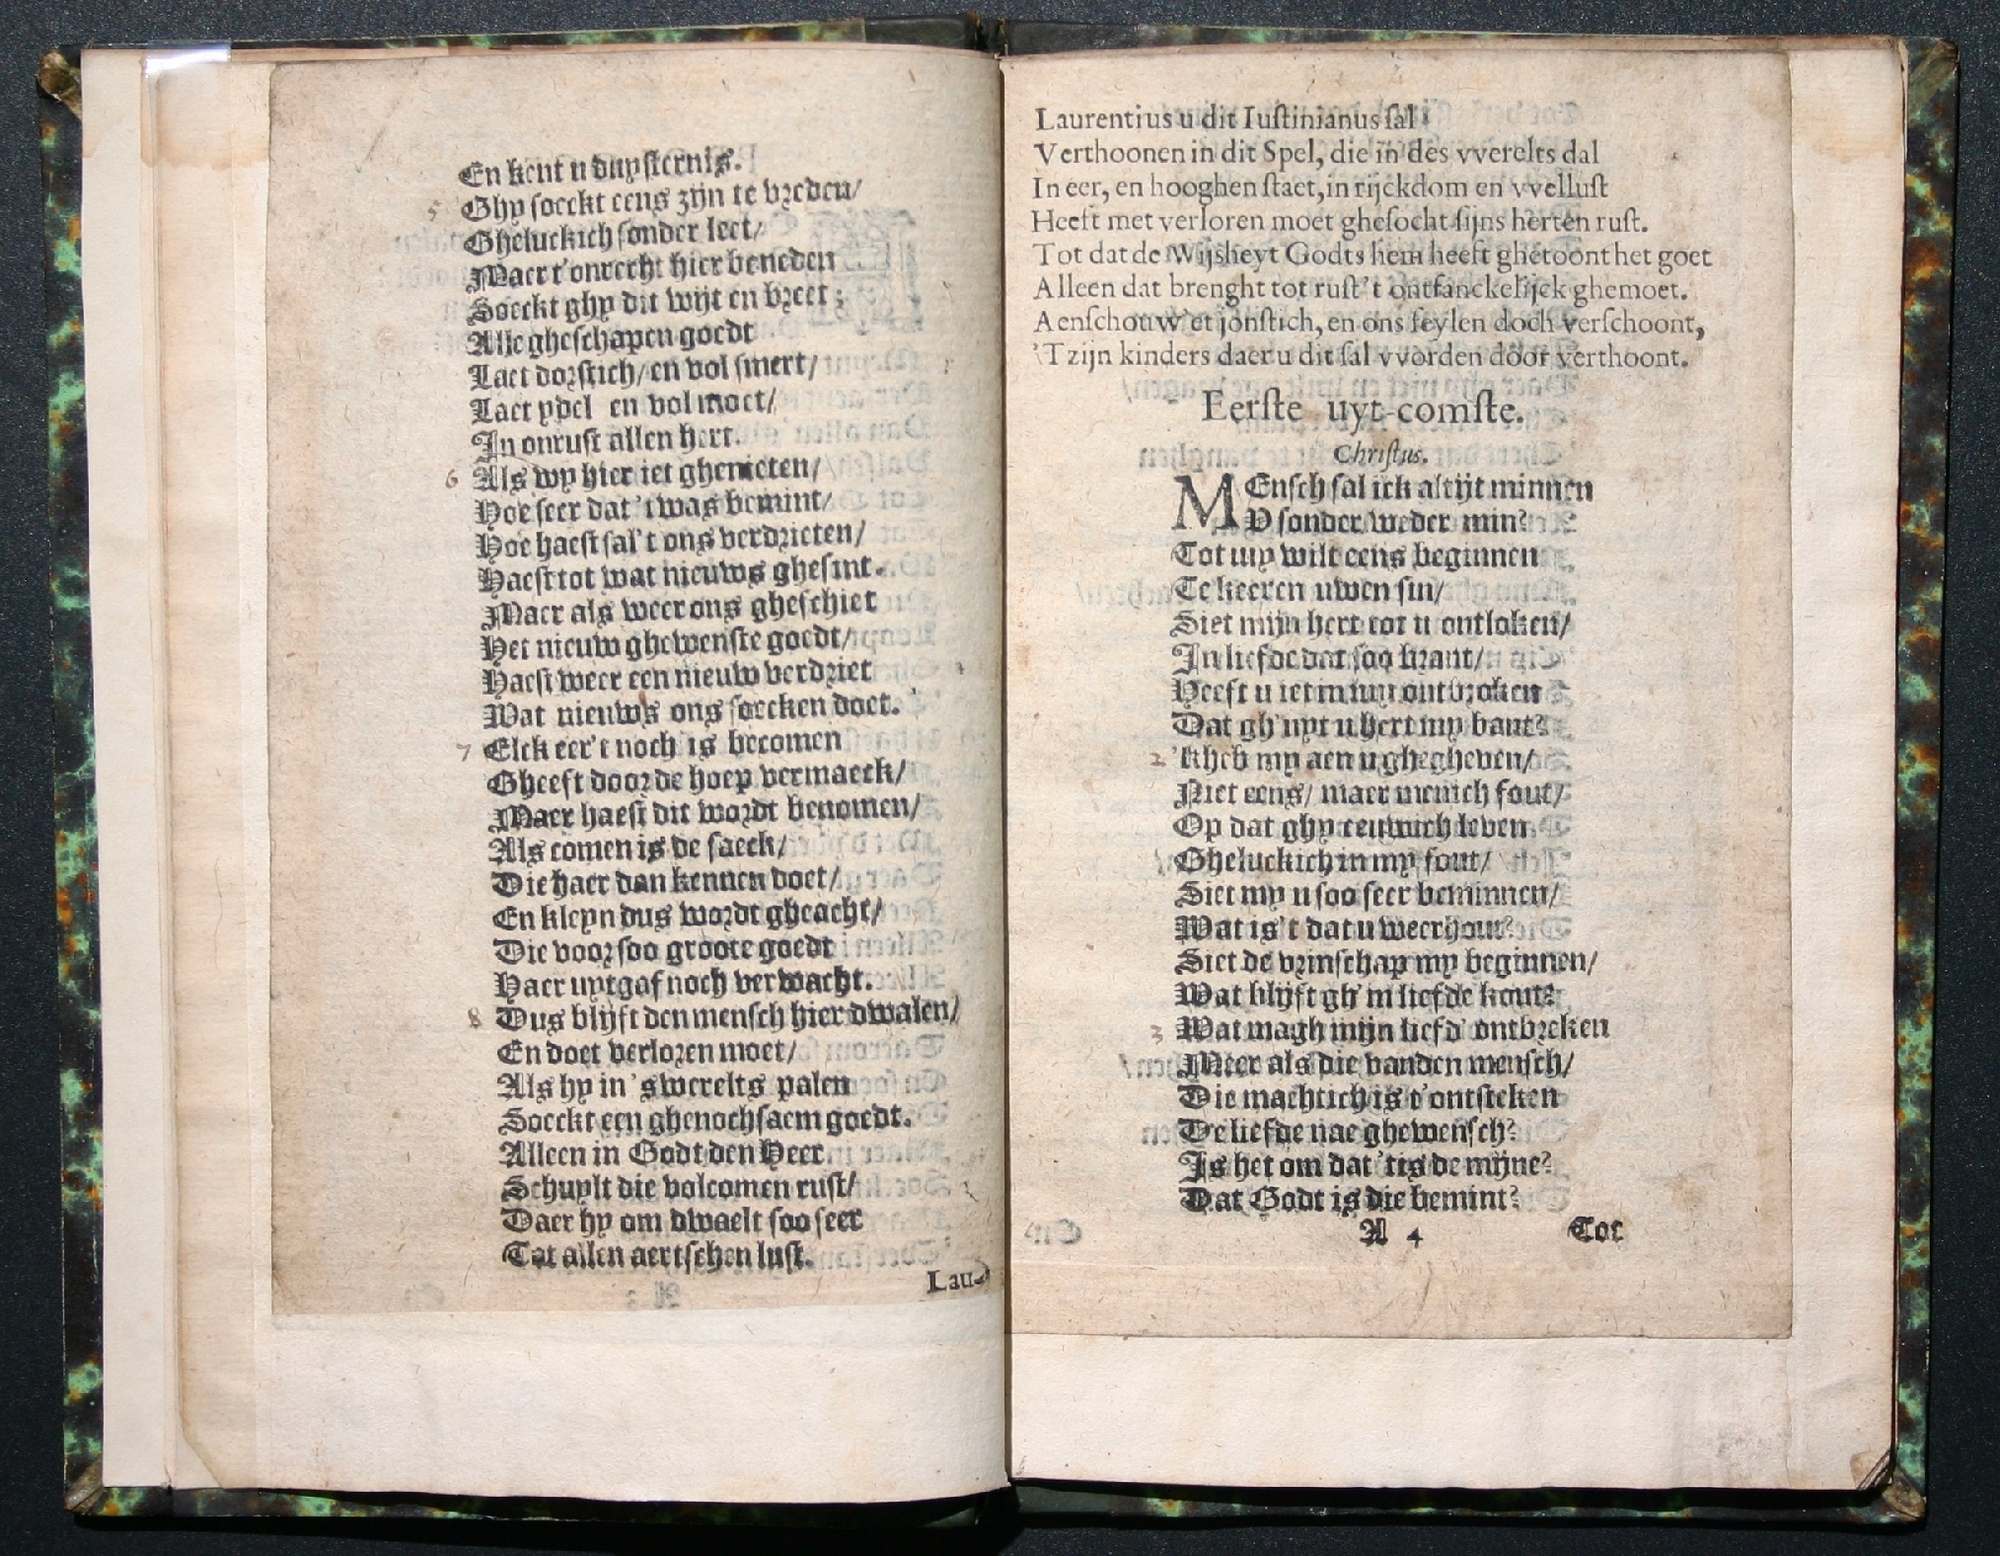 En kent u duysternis.
5 Ghy soeckt eens zijn te vreden/
Gheluckich sonder leet/
Maer t'onrecht hier beneden
Soeckt ghy dit wijt en breet;
Alle gheschapen goedt
Laet dorstich/ en vol smert/
Laet ydel en vol moet/
In onrust allen hert.
6 Als wy hier iet ghenieten/
Hoe seer dat 't was bemint/
Hoe haest sal't ons verdrieten/
Haest tot wat nieuws ghesint.
Maer als weer ons gheschiet
Het nieuw ghewenste goedt/
Haest weer een nieuw verdriet
Wat nieuws ons soecken doet.
7 Elck eer't noch is becomen
Gheeft door de hoep vermaeck/
Maer haest dit wordt benomen/
Als comen is de saeck/
Die haer dan kennen doet/
En kleyn dus wordt gheacht/
Die voor soo groote goedt
Haer uytgaf noch verwacht.
8 Dus blijft den mensch hier dwalen/
En doet verloren moet/
Als hy in 'swerelts palen
Soeckt een ghenochsaem goedt.
Alleen in Godt den Heer
Schuylt die volcomen rust/
Daer hy om dwaelt soo seer
Tot allen aertschen lust.
Lau-
Laurentius u dit Iustinianus sal
Verthoonen in dit Spel, die in des vverelts dal
In eer, en hooghen staet, in rijckdom en vvellust
Heeft met verloren moet ghesocht sijns herten rust.
Tot dat de Wijsheyt Godts hem heeft ghetoont het goet
Alleen dat brenght tot rust 't ontfanckelijck ghemoet.
Aenschouw'et jonstich, en ons feylen doch verschoont,
'T zijn kinders daer u dit sal vvorden door verthoont.
Eerste uyt-comste.
Christus.
MEnsch sal ick altijt minnen
V sonder weder min?
Tot my wilt eens beginnen
Te keeren uwen sin/
Siet mijn hert tot u ontloken/
In liefde dat soo brant/
Heeft u iet in my ontbroken
Dat gh'uyt u hert my bant?
2 'Kheb my aen u ghegheven/
Niet eens/ maer menich fout/
Op dat ghy eeuwich leven
Gheluckich in my sout/
Siet my u soo seer beminnen/
Wat is't dat u weerhout?
Siet de vrinschap my beginnen/
Wat blijft gh'in liefde kout?
3 Wat magh mijn liefd' ontbreken
Meer als die vanden mensch/
Die machtich is t'ontsteken
De liefde nae ghewensch?
Is het om dat 'tis de mijne?
Dat Godt is die bemint?
A 4
Tot